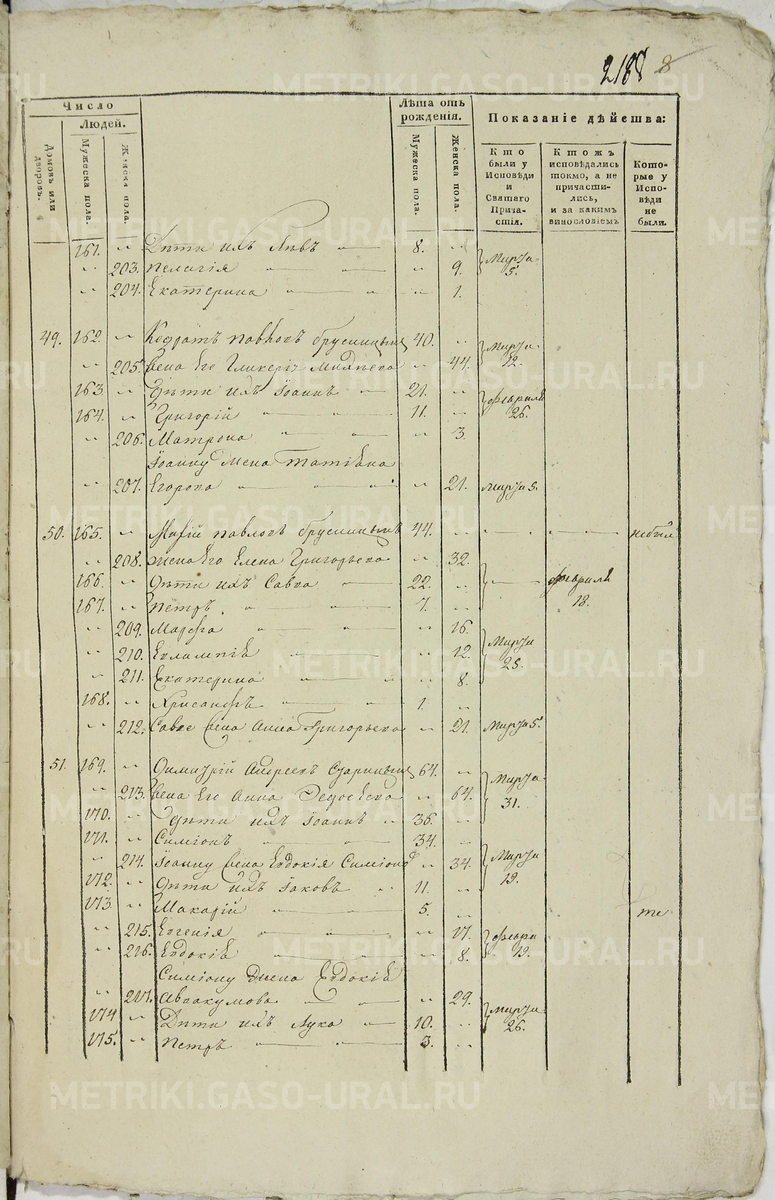 218 8
Число
Людей.
Домовъ или дворовъ.
Мужеска пола.
Женска пола.
Лѣта отъ рожденія.
Мужеска пола.
Женска пола.
Показаніе дѣйства:
Кто были у Исповѣди и Святаго Причастія.
Ктожъ исповѣдались токмо, а не причастились, и за какимъ винословіемъ
Которые у Исповѣди не были.
161. Дѣти ихъ 8. Марта 5.
203. Пелагія 9.
204. Екатерина 1.
49. 162. Кодратъ Павловъ Брусницынъ 40. Марта 12.
205. Жена Его Гликерія 44.
163. Дѣти ихъ Іоаннъ 21. Февраля 26.
164. Григорій 11.
206. Матрона 3.
Іоанну Жена Татіана
207. Егорова 21. Марта 5.
50. 165. Павловъ Брусницынъ 44.
208. Жена Его Елена Григорьева 32.
166. Дѣти ихъ Савва 22. Февраля 18.
167. Петръ 7.
209. Марфа 16. Марта 25.
210. Евлампія 12.
211. Екатерина 8.
168. Хрисанфъ 1.
212. Саввѣ Жена Анна Григорьева 21. Марта 5.
51. 169. Димитрій Андреевъ 64. Марта 31.
213. Жена Его Анна 64.
170. Дѣти ихъ Іоаннъ 36.
171. Симіонъ 34.
214. Іоанну Жена Евдокія 34. Марта 19.
172. Дѣти ихъ Іаковъ 11.
173. Макарій 5. те
215. Евгенія 17. Февра 19.
216. Евдокія 8.
Симіону Жена Евдокія
217. Аввакумова 29.
174. Дѣти ихъ Лука 10. Марта 26.
175. Петръ 3.
METRIKI.GASO-URAL.RU